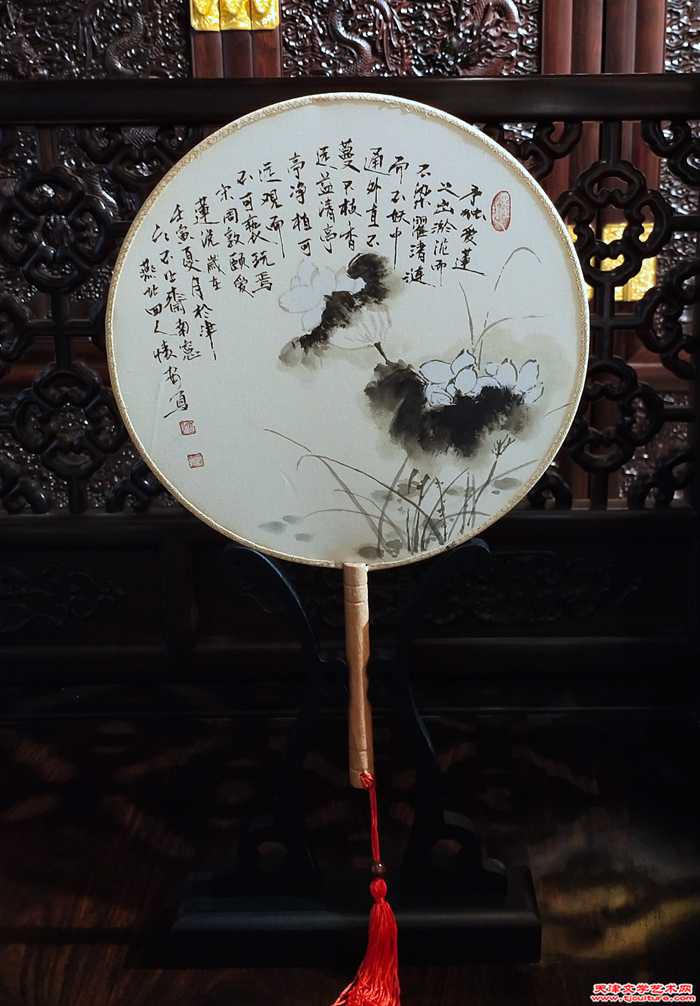 予独爱蓮
之出淤泥而
不染濯清涟
而不妖中
通外直不
蔓不枝香
远益清亭
亭净植可
远观而
不可亵玩焉
宋周敦颐爱
蓮说岁在
壬寅夏月於津
不止斋南窓
燕北田人
天津文学艺术网
www.tjculture.com